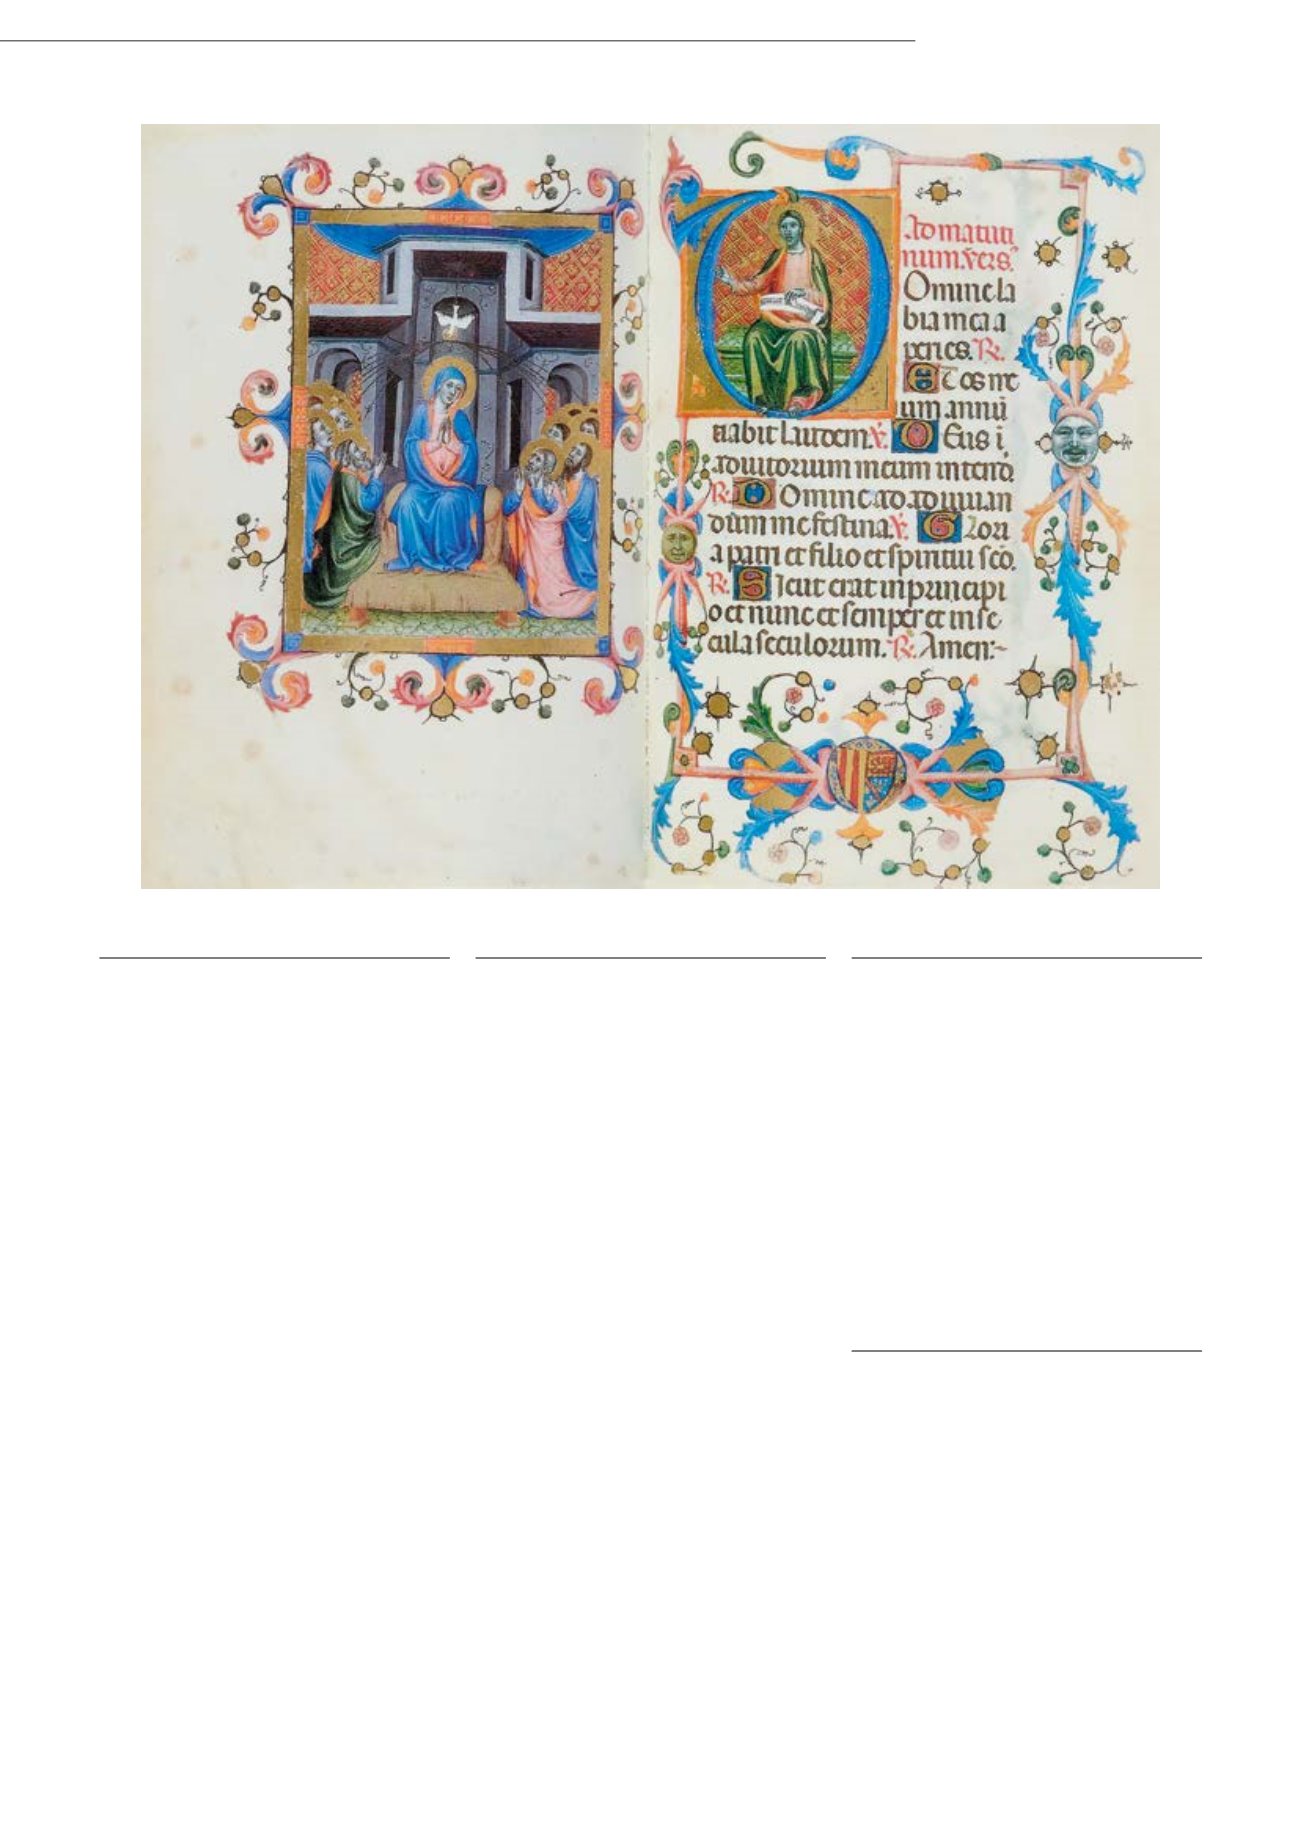 Ad matuti
num. v̄ers.
Omine la
bia mea a
peries. ℟.
Et os me
um annū
tiabit laudem. ℣. Deus ī
adiutorium meum intend
℟. Domine ad adiuuan
dum me festina. ℣. Glori
a patri et filio et spiritui scō.
℟. Sicut erat in principi
o et nunc et semper et in se
cula seculorum. ℟. Amen:~